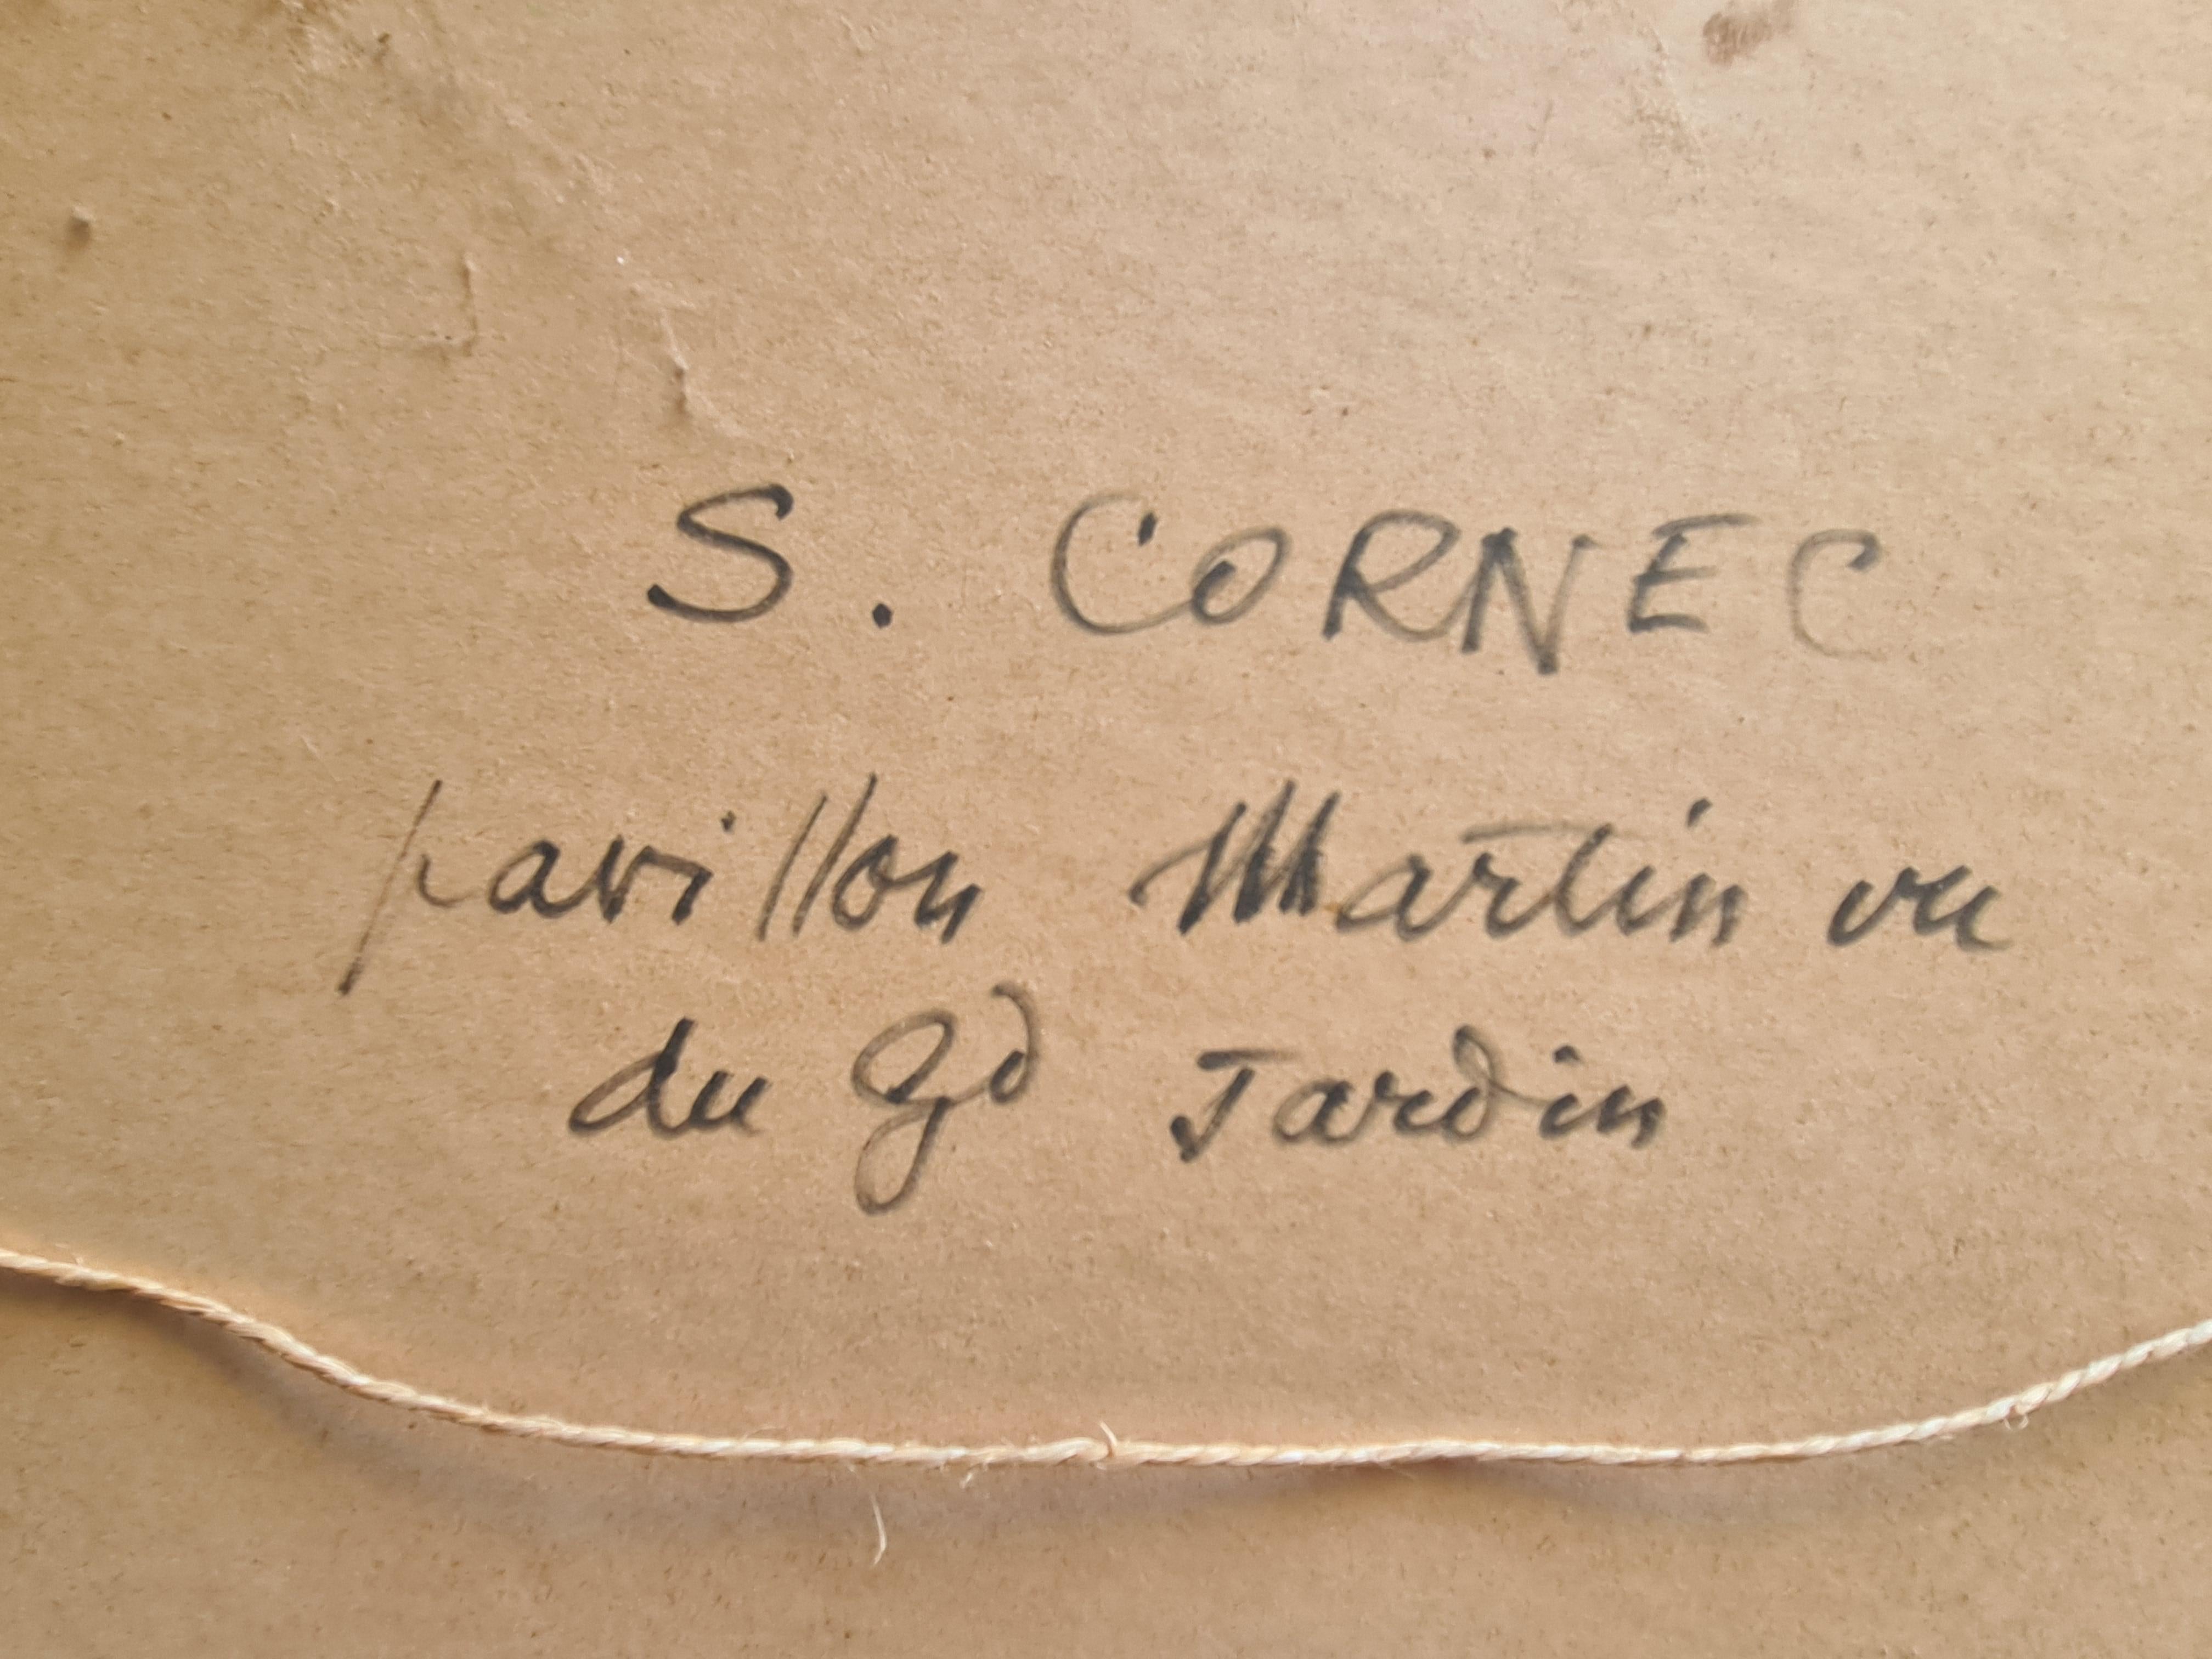 S. CORNEC
pavillon Martin vu
du gd Jardin